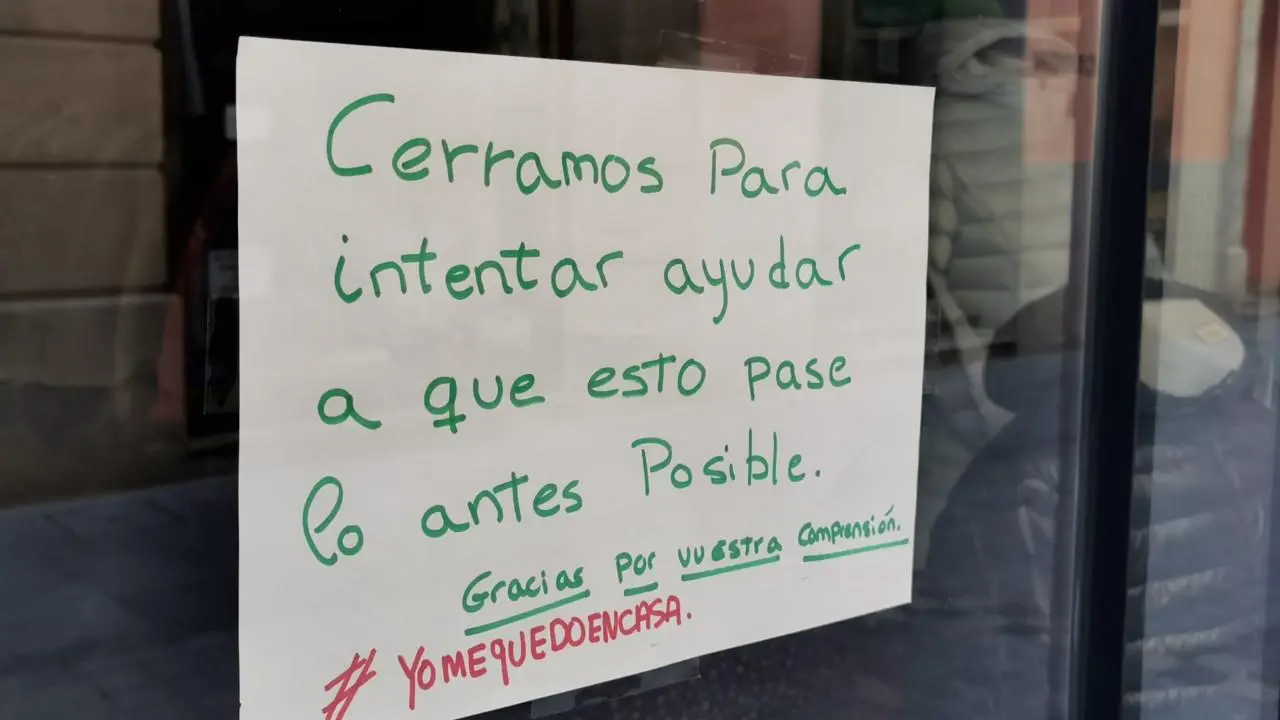 Cerramos Para
intentar ayudar
a que esto pase
lo antes Posible.
Gracias por vuestra comprensión.
# YOMEQUEDOENCASA.